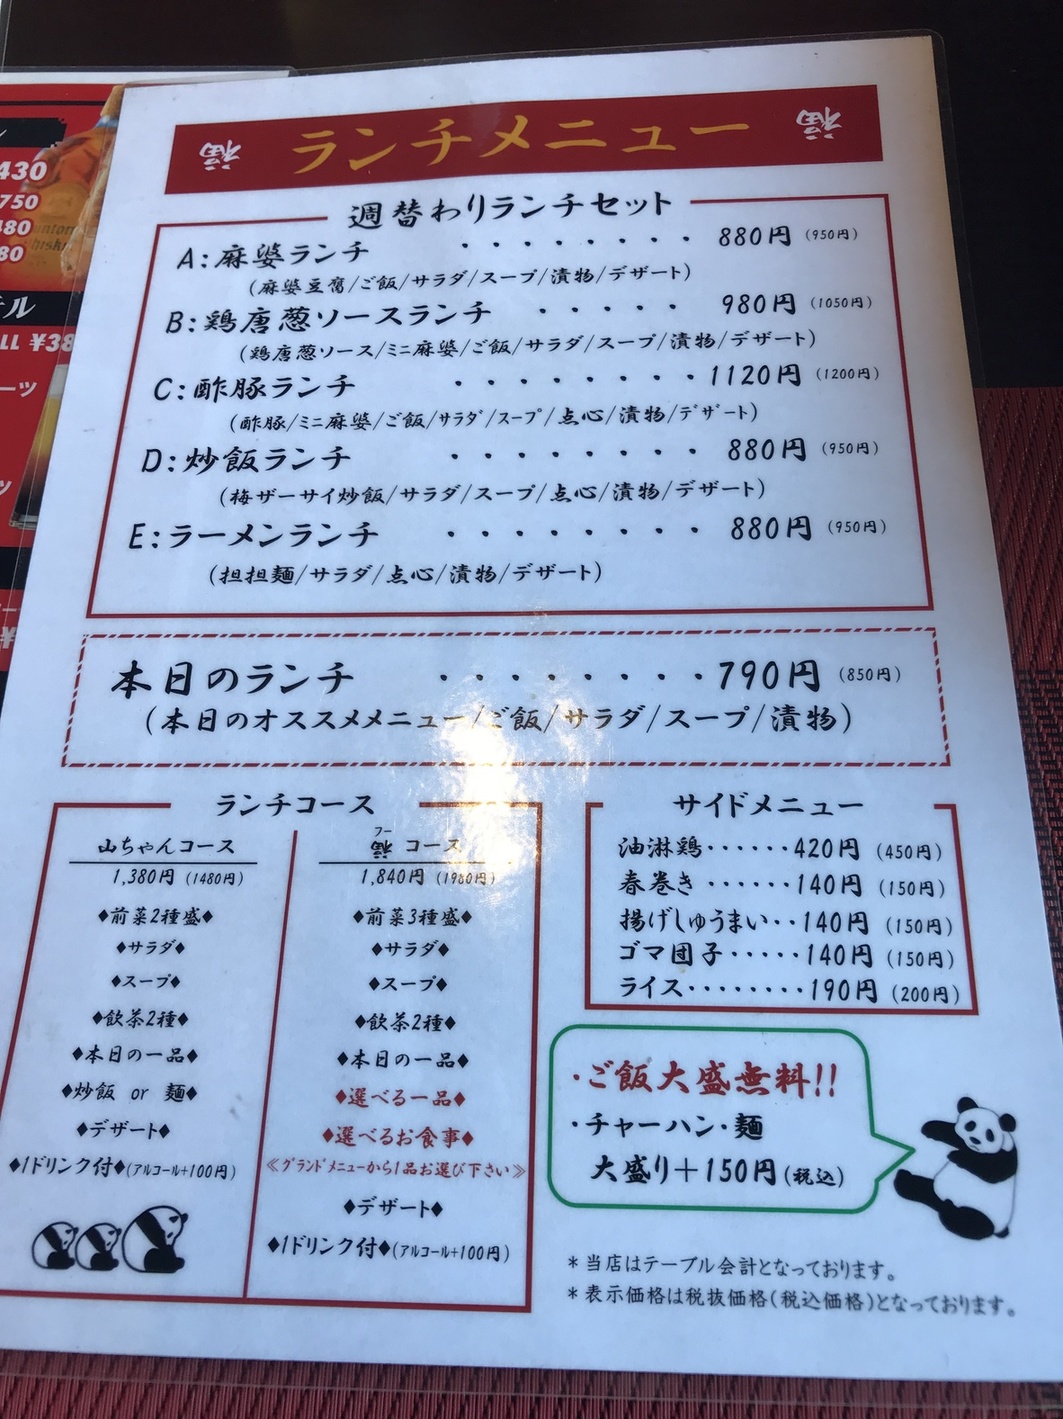 430
750
480
80
ル
LL ¥38
福 ランチメニュー 福
週替わりランチセット
A:麻婆ランチ ・・・・・・・・ 880円 (950円)
(麻婆豆腐/ご飯/サラダ/スープ/漬物/デザート)
B:鶏唐葱ソースランチ ・・・・・ 980円 (1050円)
(鶏唐葱ソース/ミニ麻婆/ご飯/サラダ/スープ/漬物/デザート)
C:酢豚ランチ ・・・・・・・・ 1120円 (1200円)
(酢豚/ミニ麻婆/ご飯/サラダ/スープ/点心/漬物/デザート)
D:炒飯ランチ ・・・・・・・・ 880円 (950円)
(梅ザーサイ炒飯/サラダ/スープ/点心/漬物/デザート)
E:ラーメンランチ ・・・・・・・・ 880円 (950円)
(担担麺/サラダ/点心/漬物/デザート)
本日のランチ ・・・・・・・・ 790円 (850円)
(本日のオススメメニュー/ご飯/サラダ/スープ/漬物)
ランチコース
山ちゃんコース
1,380円 (1480円)
◆前菜2種盛◆
◆サラダ◆
◆スープ◆
◆飲茶2種◆
◆本日の一品◆
◆炒飯 or 麺◆
◆デザート◆
◆1ドリンク付◆(アルコール+100円)
フー
福 コース
1,840円 (1980円)
◆前菜3種盛◆
◆サラダ◆
◆スープ◆
◆飲茶2種◆
◆本日の一品◆
◆選べる一品◆
◆選べるお食事◆
≪グランドメニューから1品お選び下さい≫
◆デザート◆
◆1ドリンク付◆(アルコール+100円)
サイドメニュー
油淋鶏・・・・・・420円 (450円)
春巻き・・・・・・140円 (150円)
揚げしゅうまい・・140円 (150円)
ゴマ団子・・・・・140円 (150円)
ライス・・・・・・・・190円 (200円)
・ご飯大盛無料!!
・チャーハン・麺
大盛り+150円(税込)
*当店はテーブル会計となっております。
*表示価格は税抜価格(税込価格)となっております。